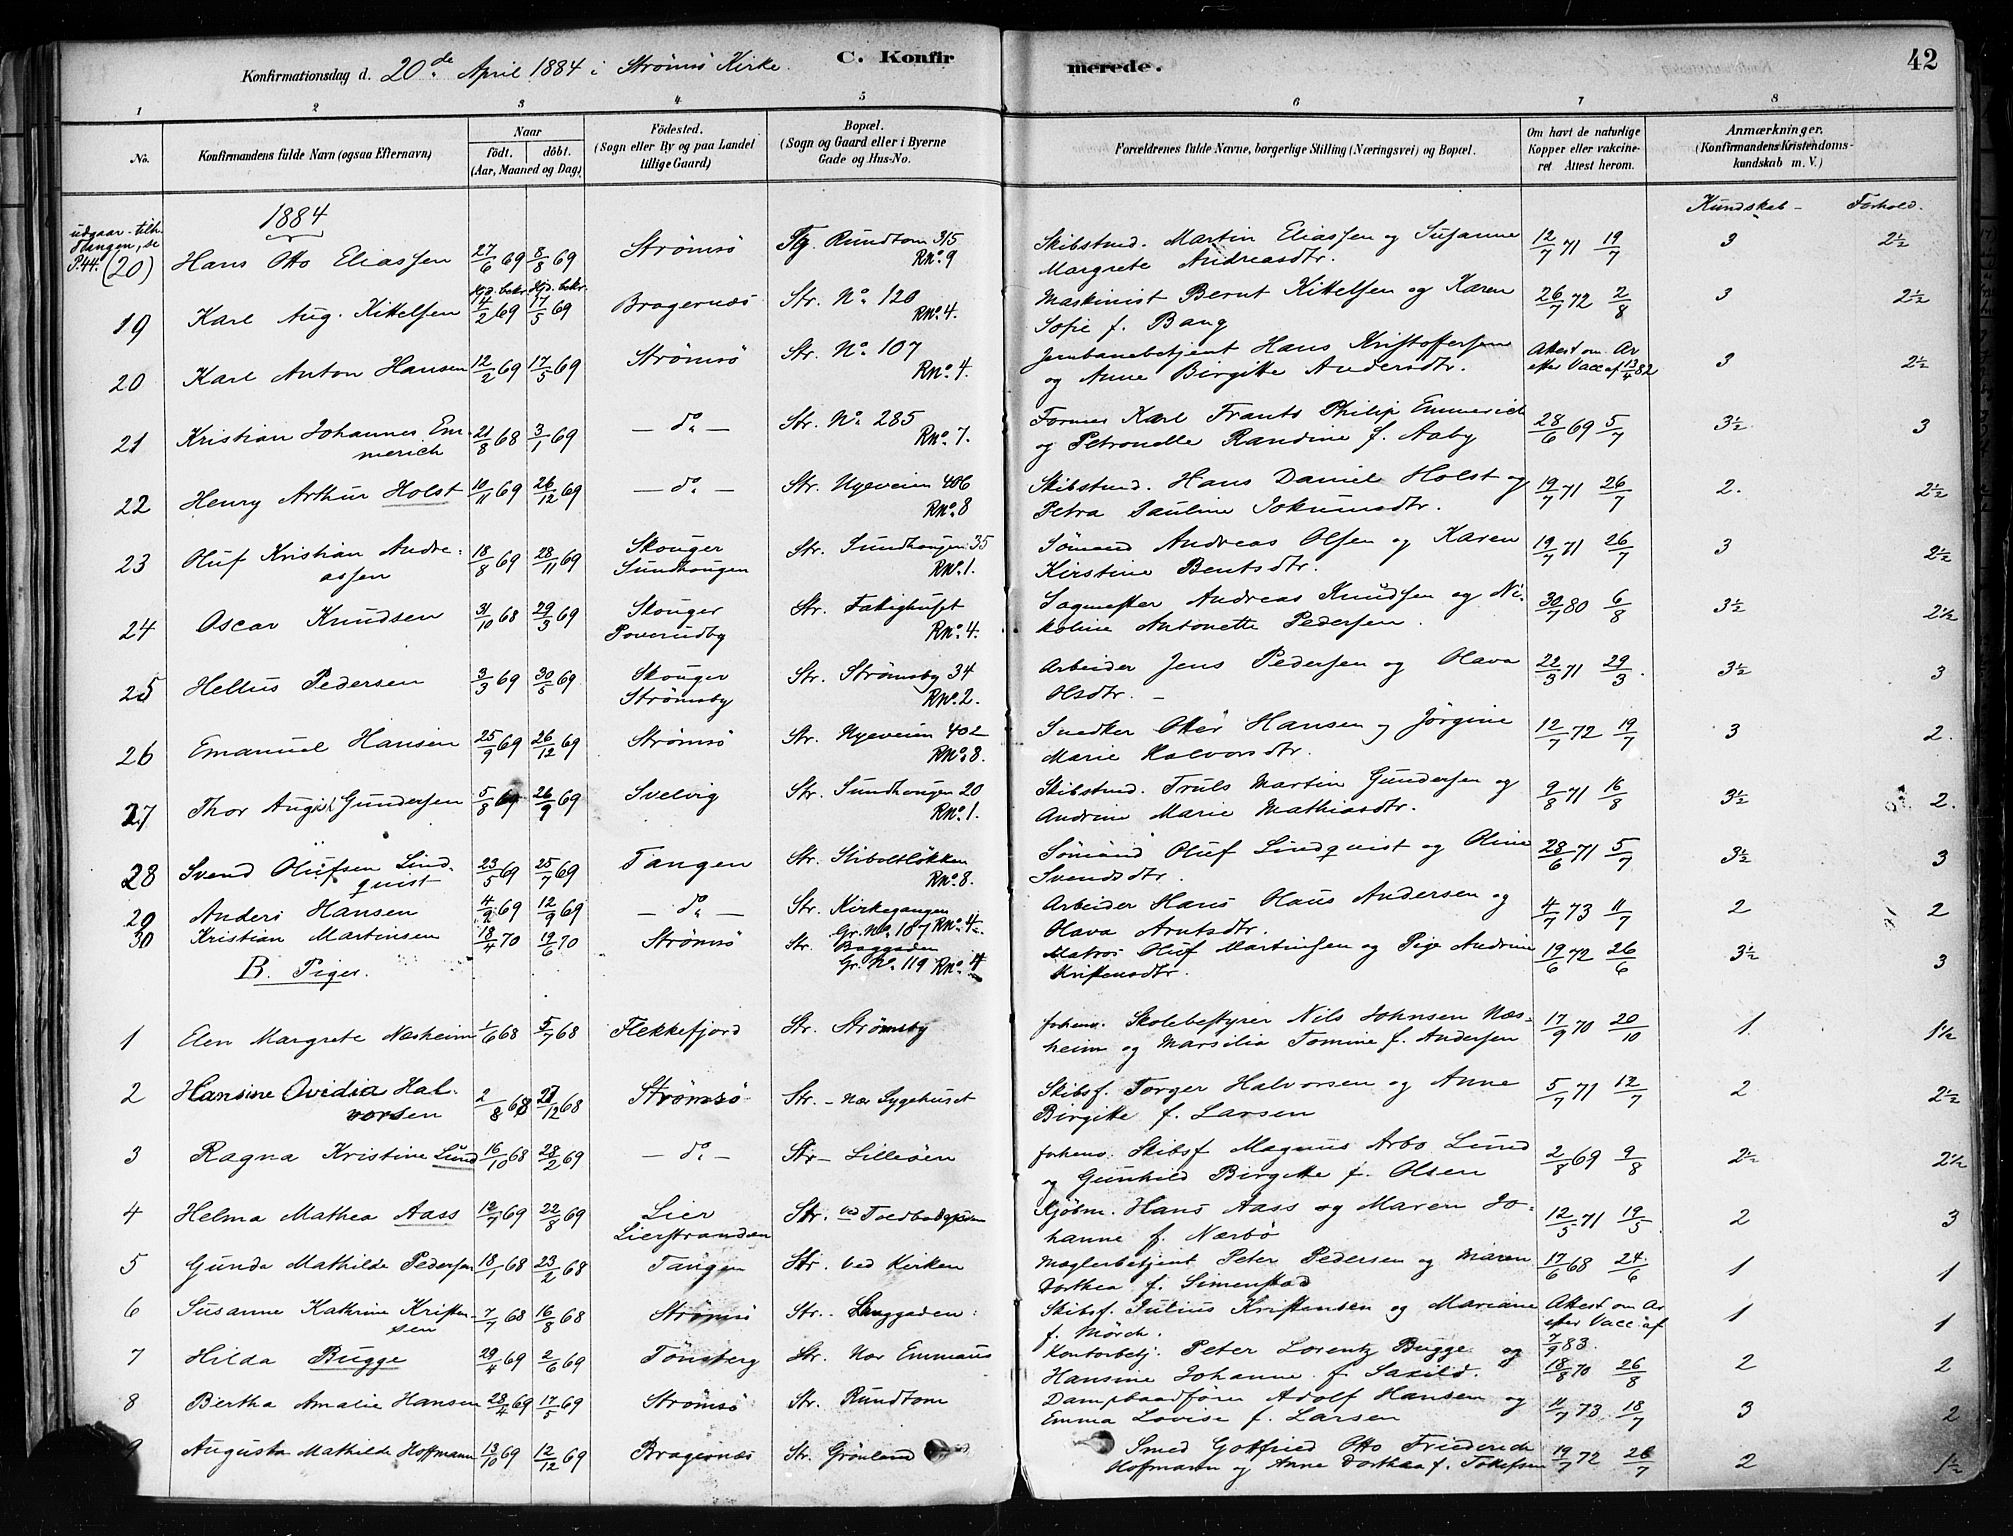 Konfirmationsdag d. 20de April 1884 i Strømsö Kirke. C. Konfir merede. 42
1 2 3 4 5 6 7 8
No. Konfirmandens fulde Navn (ogsaa Efternavn) Naar födt. döbt. (Aar, Maaned og Dag) Födested. (Sogn eller By og paa Landet tillige Gaard) Bopæl. (Sogn og Gaard eller i Byerne Gade og Hus-No. Forældrenes fulde Navne, borgerlige Stilling (Næringsvei) og Bopæl. Om havt de naturlige Kopper eller vakcineret Attest herom. Anmærkninger. (Konfirmandens Kristendomskundskab m. V.)
Kundskab - Forhold.
1884
udgaar - tilh. Tangen, se P.44. (20) Hans Otto Eliassen 27/6 69 8/8 69 Strømsö Tg. Rundtom 315 RNo. 9 Skibstmd. Martin Eliassen og Susanne Margrete Andreasdtr. 12/7 71 19/7 3 2½
19 Karl Aug. Kittelsen 14/2 69 17/5 69 Bragernæs Str. No. 120 RNo. 4. Maskinist Bernt Kittelsen og Karen Sofie f. Bang 26/7 72 2/8 3 2½
20 Karl Anton Hansen 12/2 69 17/5 69 Strømsö Str. No. 107 RNo. 4. Jernbanebetjent Hans Kristofersen og Anne Birgitte Andersdtr. Attest om Ar efter Vacc af 13/4 82 3 2½
21 Kristian Johannes Emmerich 21/8 68 3/1 69 - do - Str. No. 285 RNo. 7. Former Karl Frants Philip Emmerich og Petronelle Randine f. Aaby 28/6 69 5/7 3½ 3
22 Henry Arthur Holst 10/11 69 26/12 69 - do - Str. Nyeveien 406 RNo. 8 Skibstmd. Hans Daniel Holst og Petra Pauline Jokumsdtr. 19/7 71 26/7 2. 2½
23 Oluf Kristian Andreassen 18/8 69 28/11 69 Skouger Sundhougen Str. Sundhougen 35 RNo. 1. Sömand Andreas Olsen og Karen Kirstine Bentsdtr. 19/7 71 26/7 3 2½
24 Oscar Knudsen 31/10 68 29/3 69 Skouger Poverudby Str. Fattighuset RNo. 4. Sagmester Andreas Knudsen og Nikoline Antonette Pedersen. 30/7 80 6/8 3½ 2½
25 Hellus Pedersen 3/3 69 30/5 69 Skouger Strömsby Str. Strömsby 34 RNo. 2. Arbeider Jens Pedersen og Olava Olsdtr. - 22/3 71 29/3. 3½ 3
26 Emanuel Hansen 25/9 69 26/12 69 Strömsö Str. Nyeveien 402 RNo. 8. Snedker Otter Hansen og Jörgine Marie Halvorsdtr. 12/7 72 19/7 3 2.
27 Thor August Gundersen 5/8 69 26/9 69 Svelvig Str. Sundhougen 20 RNo. 1. Skibstmd. Truls Martin Gundersen og Andrine Marie Mathiasdtr. 9/8 71 16/8 3½ 2.
28 Svend Olufsen Lindquist 23/5 69 25/7 69 Tangen Str. Stiboltlökken RNo. 8. Sömand Oluf Lindquist og Oline Svendsdtr. 28/6 71 5/7 3½ 3
29 Anders Hansen 4/2 69 12/9 69 - do - Str. Kirkegangen Gr. No. 187 RNo. 4. Arbeider Hans Olaus Andersen og Olava Arntsdtr. 4/7 73 11/7 2 2
30 Kristian Martinsen 18/4 70 19/6 70 Strömsö Str. Baggaden Gr. No. 119 RNo. 4 Matros Oluf Martinsen og Pige Andrine Kristensdtr. 19/6 72 26/6 3½ 3
B. Piger.
1 Elen Margrete Næsheim 1/6 68 5/7 68 Flekkefjord Str. Strömsby forhenv. Skolebestyrer Nils Johnsen Næsheim og Marsilia Tomine f. Andersen 17/9 70 20/10 1 1½
2 Hansine Ovidia Halvorsen 2/8 68 27/12 68 Strömsö Str. - nær Sygehuset Skibsf. Torger Halvorsen og Anne Birgitte f. Larsen 5/7 71 12/7 2 2½
3 Ragna Kristine Lund 16/10 68 28/2 69 - do - Str - Lilleöen forhenv. Skibsf Magnus Arbo Lund og Gunhild Birgitte f. Olsen 2/8 69 9/8 2½ 2½
4 Helma Mathea Aass 12/7 69 22/8 69 Lier Lierstranden Str. ved Toldbodgaden Kjöbm. Hans Aass og Maren Johanne f. Nærbö 12/5 71 19/5 2 3
5 Gunda Mathilde Pedersen 18/1 68 23/2 68 Tangen Str. ved Kirken Mæglerbetjent Peter Pedersen og Maren Dorthea f. Simenstad 17/6 68 24/6 1 1
6 Susanne Kathrine Kristensen 7/7 68 16/8 68 Strömsö Str. Langgaden. Skibsf. Julius Kristensen og Mariane f. Mörch. Attest om Ar efter Vacc. af 7/9 83. 1 1
7 Hilda Bugge 29/4 69 2/6 69 Tönsberg Str. Nær Emmaus Kontorbetj. Peter Lorentz Bugge og Hansine Johanne f. Saxild. 18/8 70 26/8 2 2
8 Bertha Amalie Hansen 28/4 69 17/5 69 Strömsö Str. Rundtom Dampbaadförer Adolf Hansen og Emma Lovise f. Larsen 11/7 73 18/7 3 2
9 Augusta Mathilde Hoffmann 13/10 69 12/12 69 Bragernæs Str. Grönland Smed Gotfried Otto Friederich Hoffmann og Anne Dorthea f. Tokefsen 19/7 72 26/7 2 1½